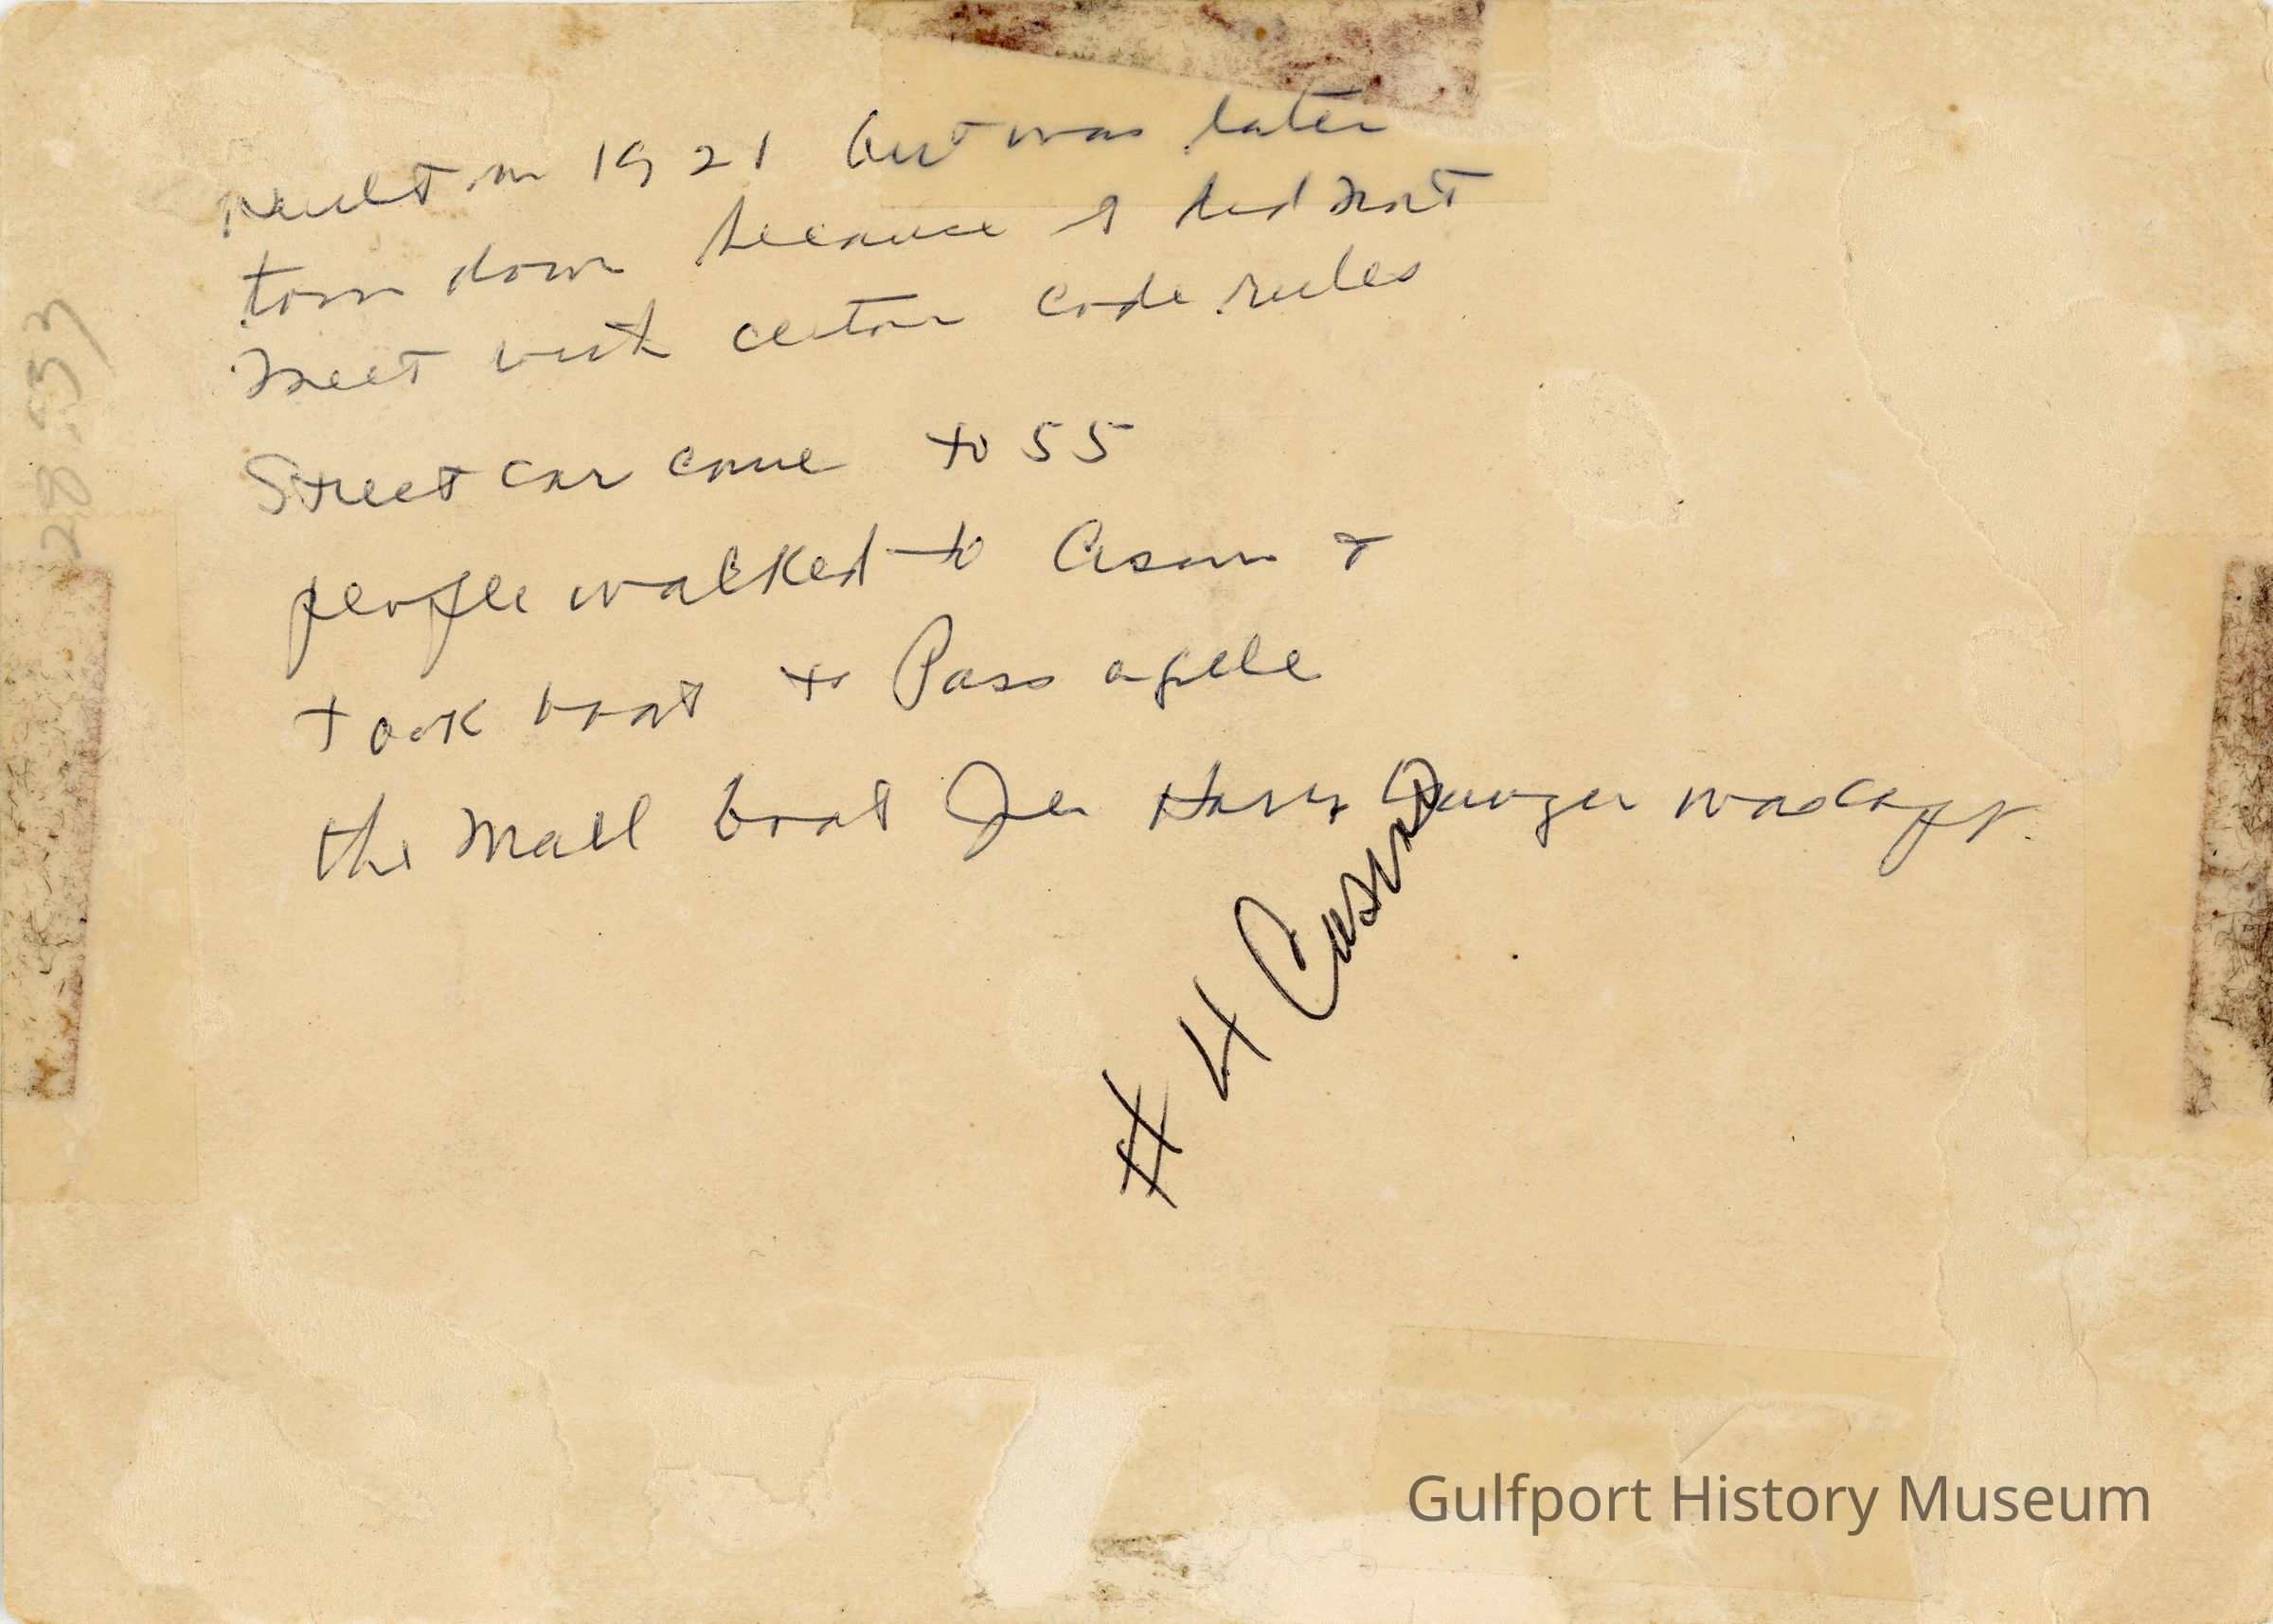 Built in 1921 but was later
torn down because it did not
meet with certain code rules
Street car came to 55
people walked to Casino &
took boat to Pass a grille
the Mail boat Joe was capt.
# 4 Casino
28.53
Gulfport History Museum